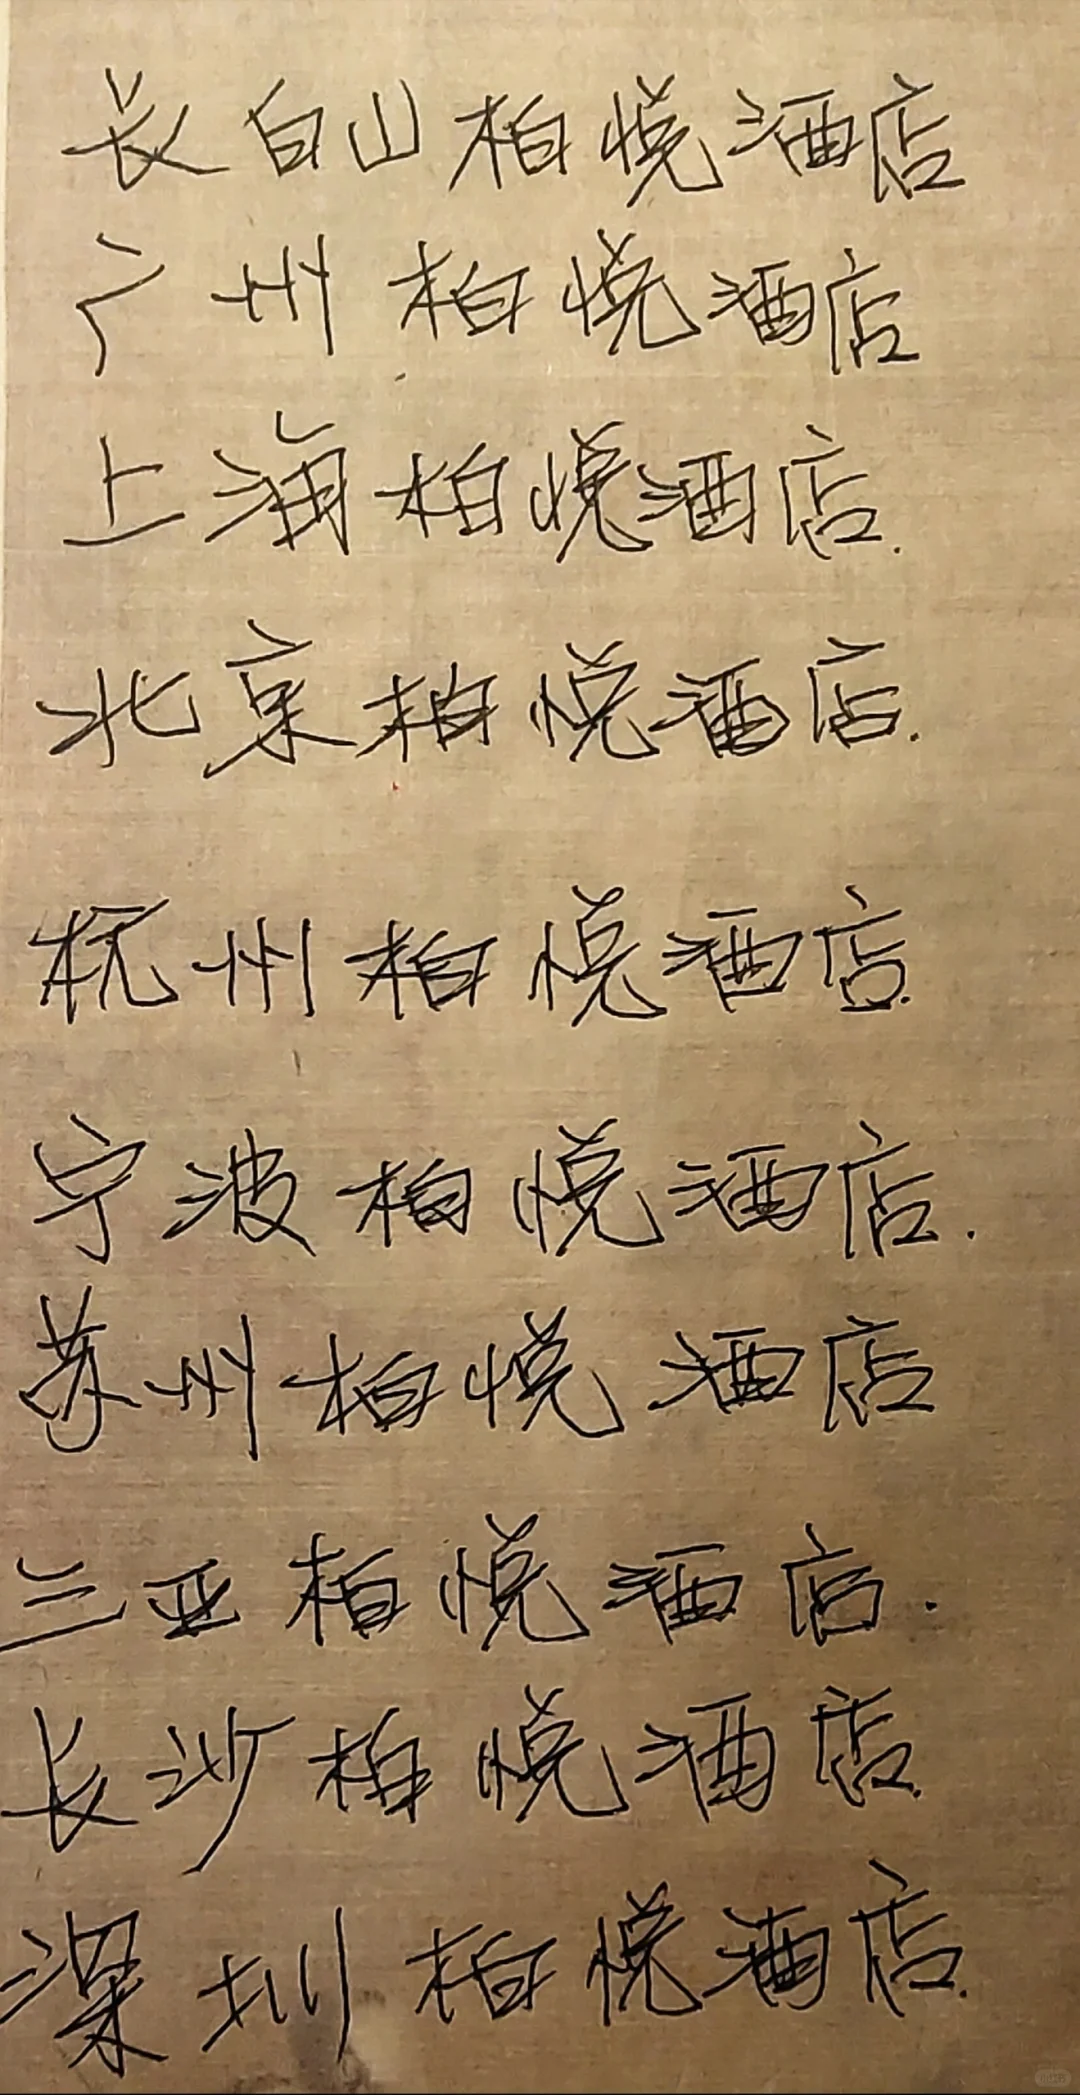 长白山柏悦酒店
广州柏悦酒店
上海柏悦酒店.
北京柏悦酒店.
杭州柏悦酒店.
宁波柏悦酒店.
苏州柏悦酒店
三亚柏悦酒店.
长沙柏悦酒店.
深圳柏悦酒店.